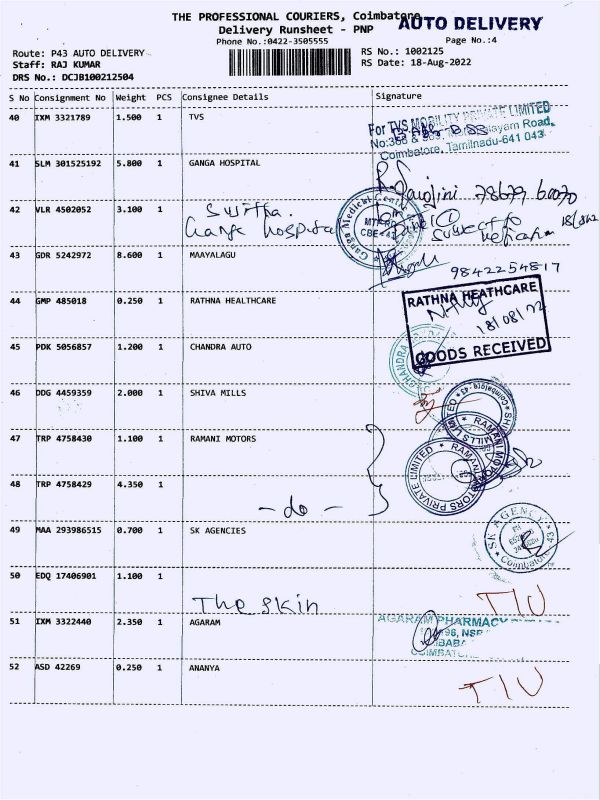 THE PROFESSIONAL COURIERS, Coimbatore
AUTO DELIVERY
Delivery Runsheet - PNP
Phone No.:0422-3505555
Page No.:4
Route: P43 AUTO DELIVERY
RS No.: 1002125
Staff: RAJ KUMAR
RS Date: 18-Aug-2022
DRS No.: DCJB100212504
S No Consignment No Weight PCS Consignee Details Signature
40 IXM 3321789 1.500 1 TVS
For TVS MOBILITY PRIVATE LIMITED
Coimbatore, Tamilnadu-641 043
41 SLM 301525192 5.800 1 GANGA HOSPITAL
42 VLR 4502052 3.100 1
Ganga hospital
Ganga Medical Centre
43 GDR 5242972 8.600 1 MAAYALAGU
9842254817
44 GMP 485018 0.250 1 RATHNA HEALTHCARE
RATHNA HEATHCARE
18/08/22
GOODS RECEIVED
45 PDK 5056857 1.200 1 CHANDRA AUTO
CHANDRA
46 DDG 4459359 2.000 1 SHIVA MILLS
47 TRP 4758430 1.100 1 RAMANI MOTORS
RAMANI MOTORS PRIVATE LIMITED
48 TRP 4758429 4.350 1
- do -
49 MAA 293986515 0.700 1 SK AGENCIES
SK AGENCY
Coimbatore
50 EDQ 17406901 1.100 1
The skin
TIU
51 IXM 3322440 2.350 1 AGARAM
AGARAM PHARMACY
52 ASD 42269 0.250 1 ANANYA
TIU